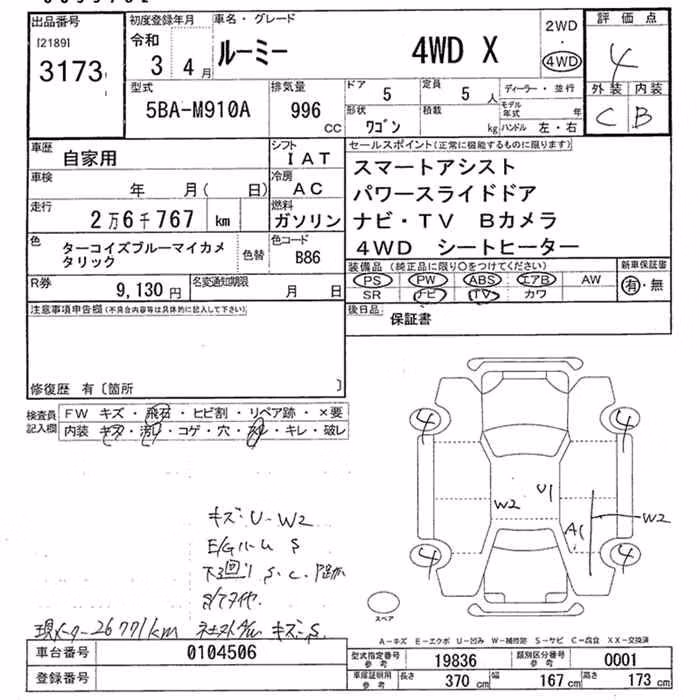 出品番号
[2189]
3173
初度登録年月
令和
3 4月
車名・グレード
ルーミー 4WD X
2WD
4WD
評価点
4
外装 内装
C B
型式
5BA-M910A
排気量
996
CC
ドア
5
定員
5 人
形状
ワゴン
積載
kg
ディーラー・並行
モデル年式 年
ハンドル 左・右
車歴
自家用
シフト
IAT
車検
年 月( 日)
冷房
AC
走行
2万6千767 km
燃料
ガソリン
色
ターコイズブルーマイカメタリック
色替
色コード
B86
R券
9,130円
名変通知期限
月 日
セールスポイント(正常に機能するものに限ります)
スマートアシスト
パワースライドドア
ナビ・TV Bカメラ
4WD シートヒーター
装備品 (純正品に限り○をつけてください)
PS PW ABS エアB AW
SR ナビ TV カワ
新車保証書
有・無
後日品
保証書
注意事項申告欄(不具合内容等は具体的に記入して下さい)
修復歴 有〔箇所 〕
検査員記入欄
FW キズ・飛石・ヒビ割・リペア跡・×要
内装 キズ・汚れ・コゲ・穴・ ・キレ・破レ
4 4
W2 U1
A1 W2
4 4
キズ・U-W2
E/Gルーム S
下回り S.C.
現メーター26771km
キズ・S
スペア
A-キズ E-エクボ U-凹み W-補修跡 S-サビ C-腐食 XX-交換済
車台番号 0104506
登録番号
型式指定番号
参考
19836
類別区分番号
参考
0001
車庫証明用
参考
長さ 370 cm 幅 167 cm 高さ 173 cm